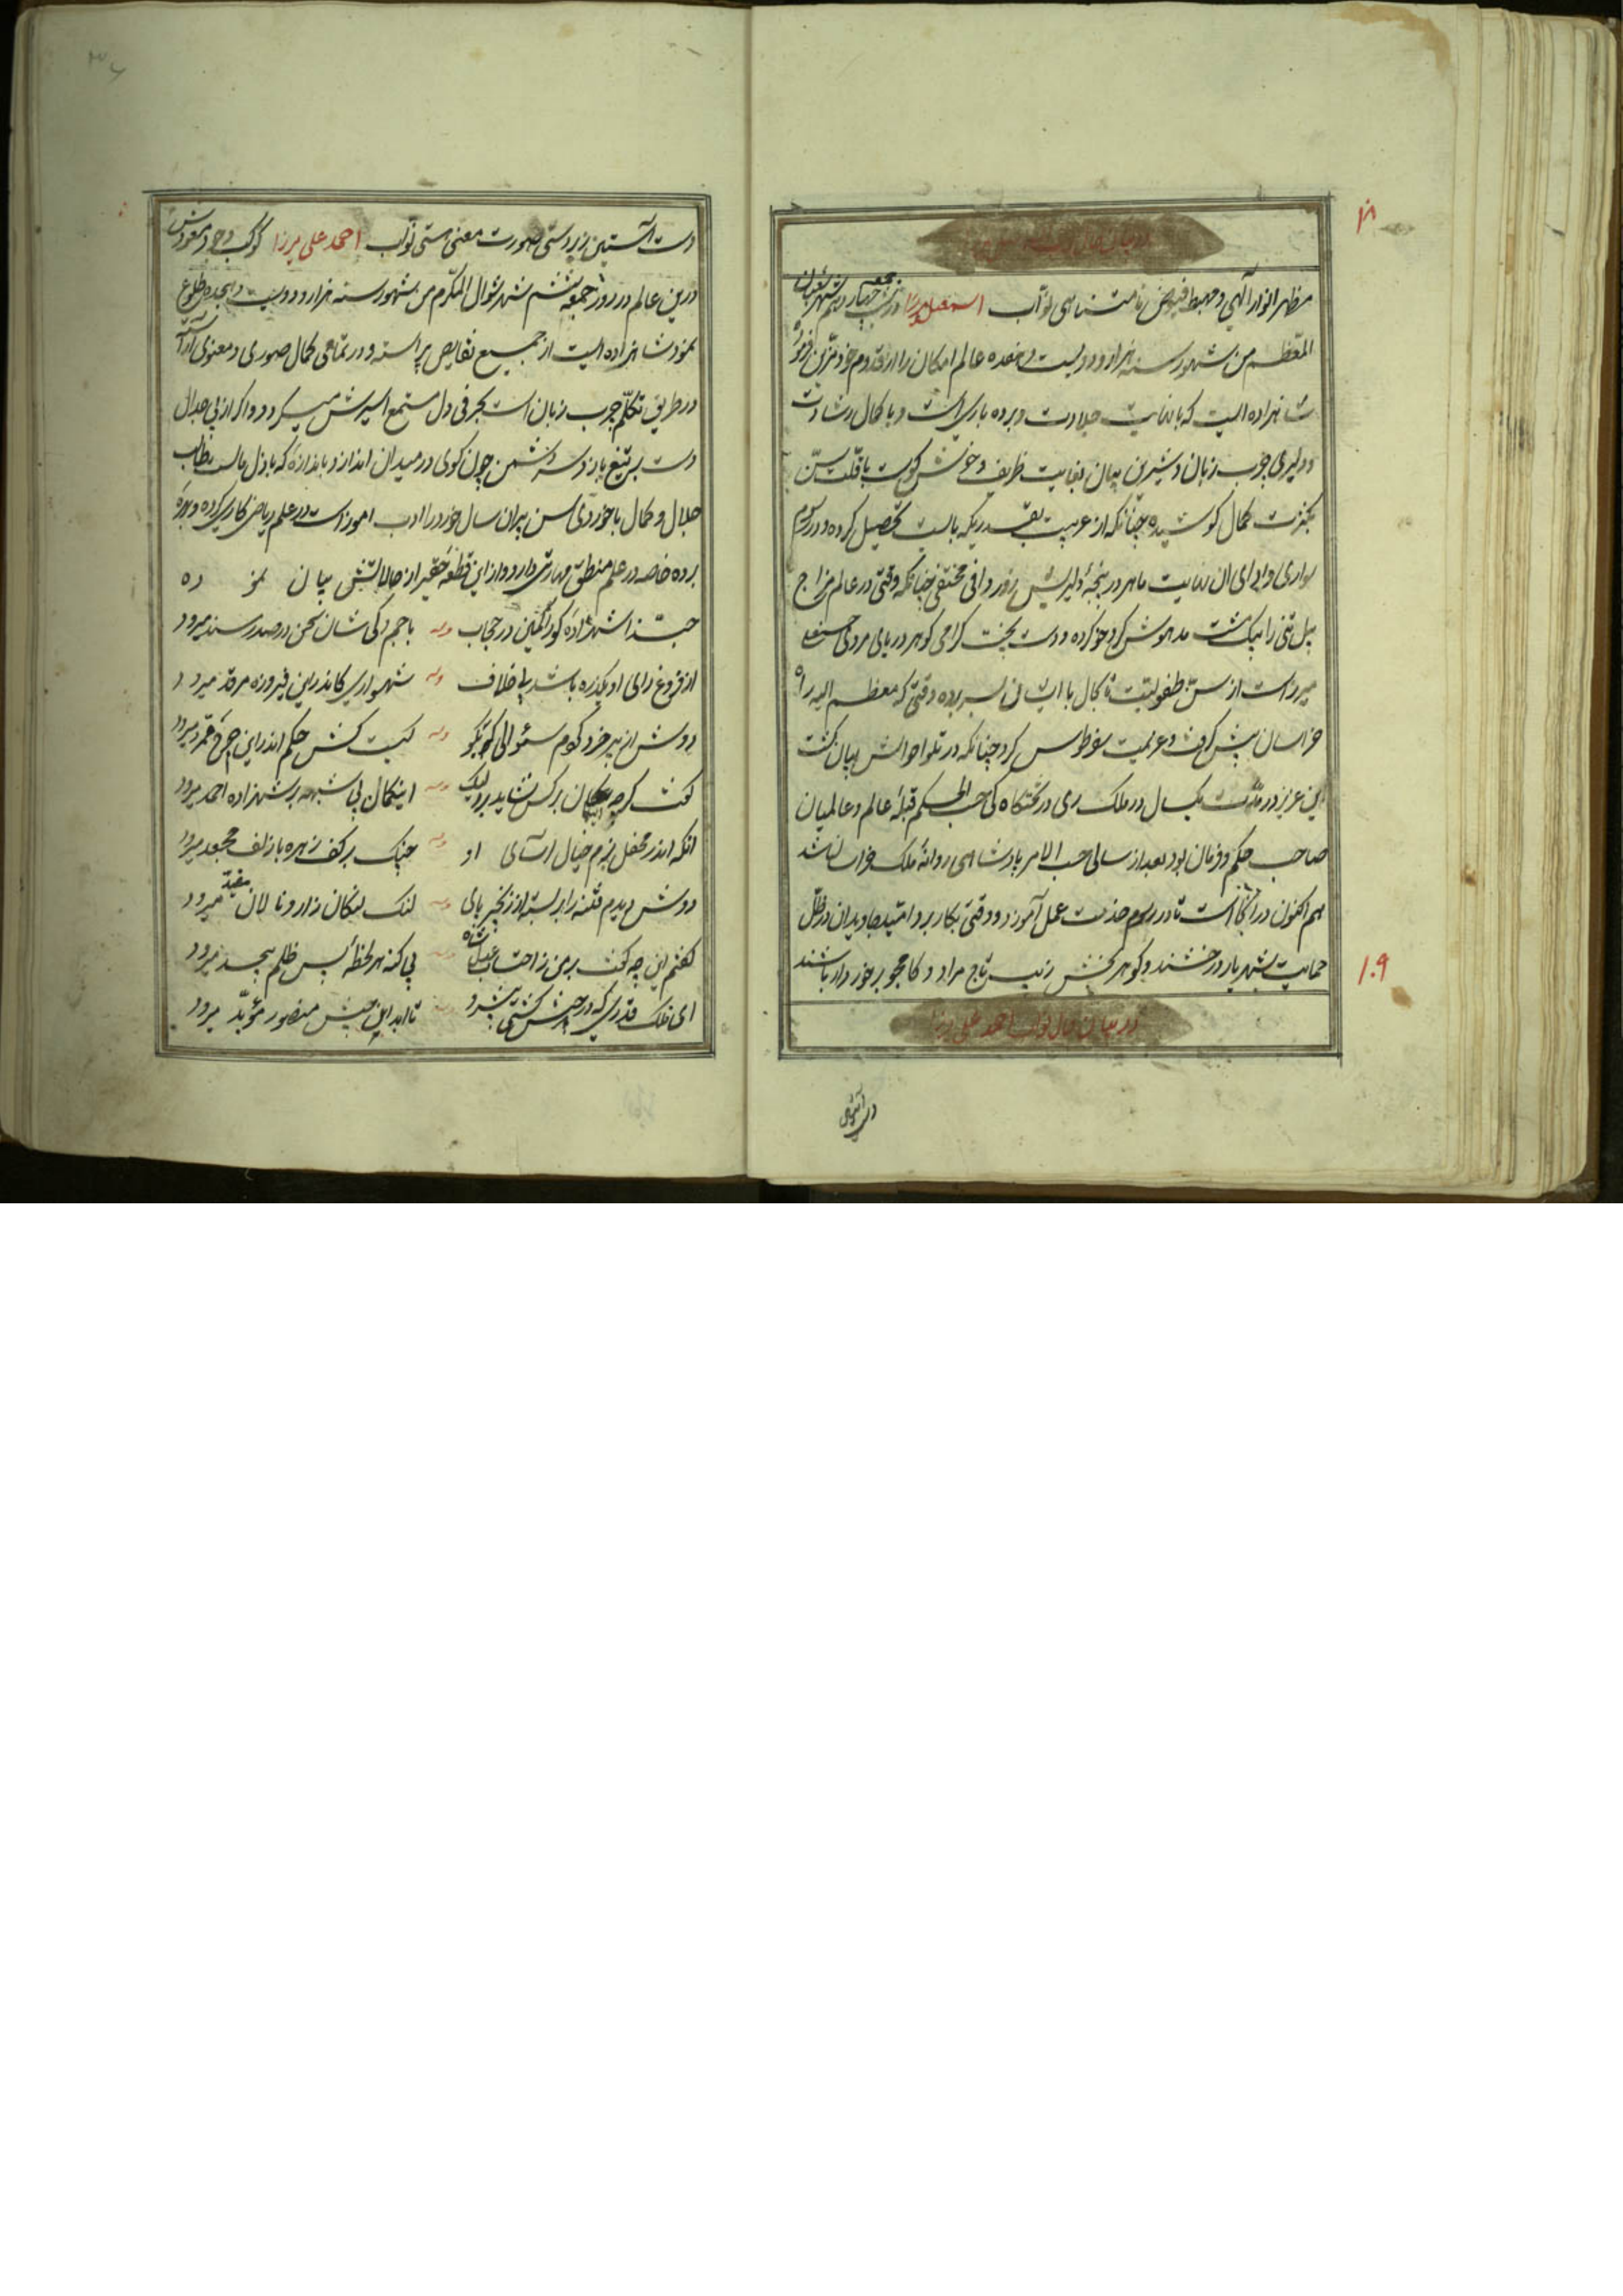 مظهر انوار آلهی و مهبط فیوض نامتناهی نواب اسمعیل میرزا در شب جمعه چهاردهم شهر شعبان
المعظم من شهور سنه هزار و دویست و هفده عالم امکان را از قدوم خود مزین فرمود
شاهزاده ایست که با نهایت جلادت و برده باری است و با کمال رشادت
و دلیری چرب زبان و شیرین بیان بغایت ظریف و خوش کوست با قلت سن
بکثرت کمال کوشیده چنانکه از عربیت بقدریکه بایست تحصیل کرده و در رسوم
سواری و بغایت ماهر در پنجهٔ دلیریش زور وافی مختفی چنانکه وقتی در عالم مزاج
پیل تنی را بیک مشت مدهوش کرد خو کرده و دست بخت کرامی کوهر دریای مردی حسنعلی
میرزاست از سن طفولیت تا بحال با ایشان بسر برده وقتی که معظم الیه راه
خراسان پیش کرفت و عزیمت طوس کرد چنانکه در تلو احوالش بیان کشت
این عزیز در مدت یکسال در ملک ری در تختکاه کی حسب الحکم قبلهٔ عالم و عالمیان
صاحب حکم و فرمان بود بعد از سالی حسب الامر پادشاهی روانهٔ ملک خراسان شد
هم اکنون در آنجاست تا در رسوم خدمت عمل آموزد و وقتی بکار برد امید جاویدان در ظل
حمایت شهریار درخشند و کوهر بخش زیب تاج مراد و کامجو برخوردار باشند
در بیان حال نواب احمد علی میرزا
۱۰۹
دست آستین
دست آستین زبردستی صورت معنی هستی نواب احمد علی میرزا کوکب وجود مسعودش
درین عالم در روز جمعه ششم شهر شوال المکرم من شهور سنه هزار و دویست و هیجده طلوع
نمود شاهزاده ایست از جمیع نقایص پیراسته و در تمامی کمال صوری و معنوی آراسته
در طریق تکلم چرب زبان است بحرفی دل مستمع اسیرش میکردد و اکر از پی جدال
دست بر تیغ یازد سر دشمن چون کوی در میدان اندازد باندازه که با زال
جلال و کمال با خوردی سن پیران سال خورد را ادب آموز است در علم ریاضی کار کرده و بهره
برده خاصه در علم منطق مهارتی دارد و از این قطعه حقیر از حالاتش بیان نموده
حبذا شهزاده کو را کمین در حجاب باجم و کی شان سخن در صدر مسند میرود
از فروغ رای او یکذره باشد بی خلاف شهسواری کاندرین فیروزه مرقد میرود
دوش از پیر خرد کردم سئوالی کو بکو کیست کش حکم اندراین چرخ ممرد میرود
کفت کرچه این کمان بر کس نشاید برد لیک این کمان بی شبهه بر شهزاده احمد میرود
انکه اندر محفل بزم خیال آرای او چنک بر کف زهره با زلف مجعد میرود
دوش دیدم فتنه را بر بسته از زنجیر پای لنک لنکان زار و نالان مقید میرود
کفتم این چه کفت بر من ز احتساب عدل شاه بی کنه هر لحظه بس ظلم بیحد میرود
ای فلک قدری که در جیش کشتی تا ابد این جیش منصور مؤبد میرود